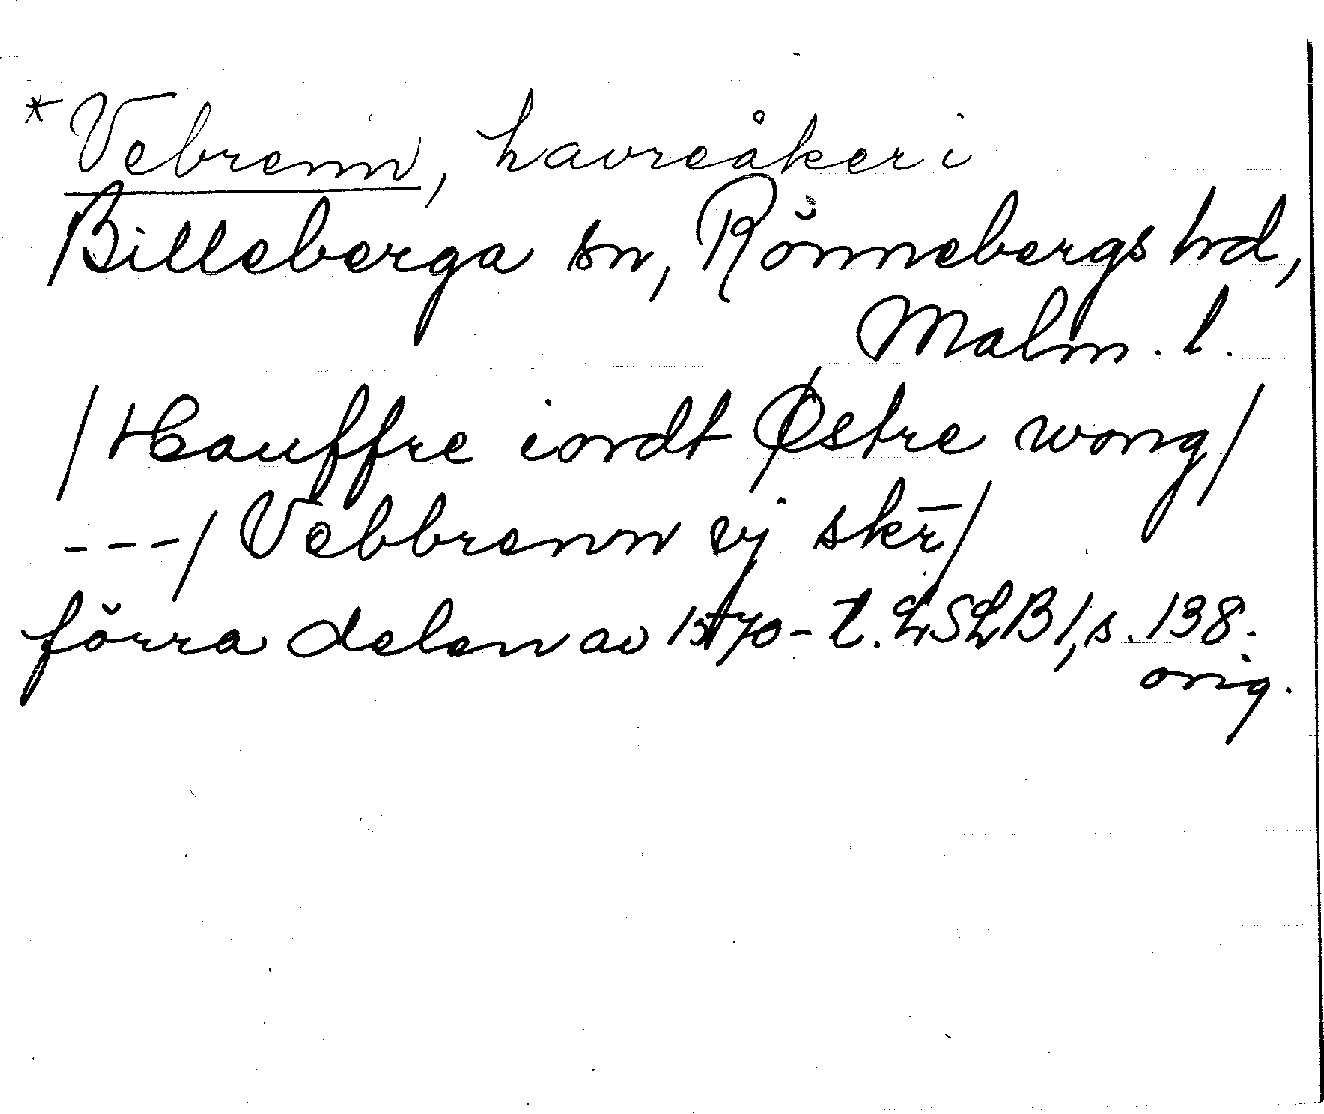 *Vebrenn, havreåker i
Billeberga sn, Rönnebergs hd,
Malm. l.
/Hauffre iordt Østre wong/
---/Vebbrenn vj skr̄/
förra delen av 1570-t. LSLB1, s. 138.
orig.